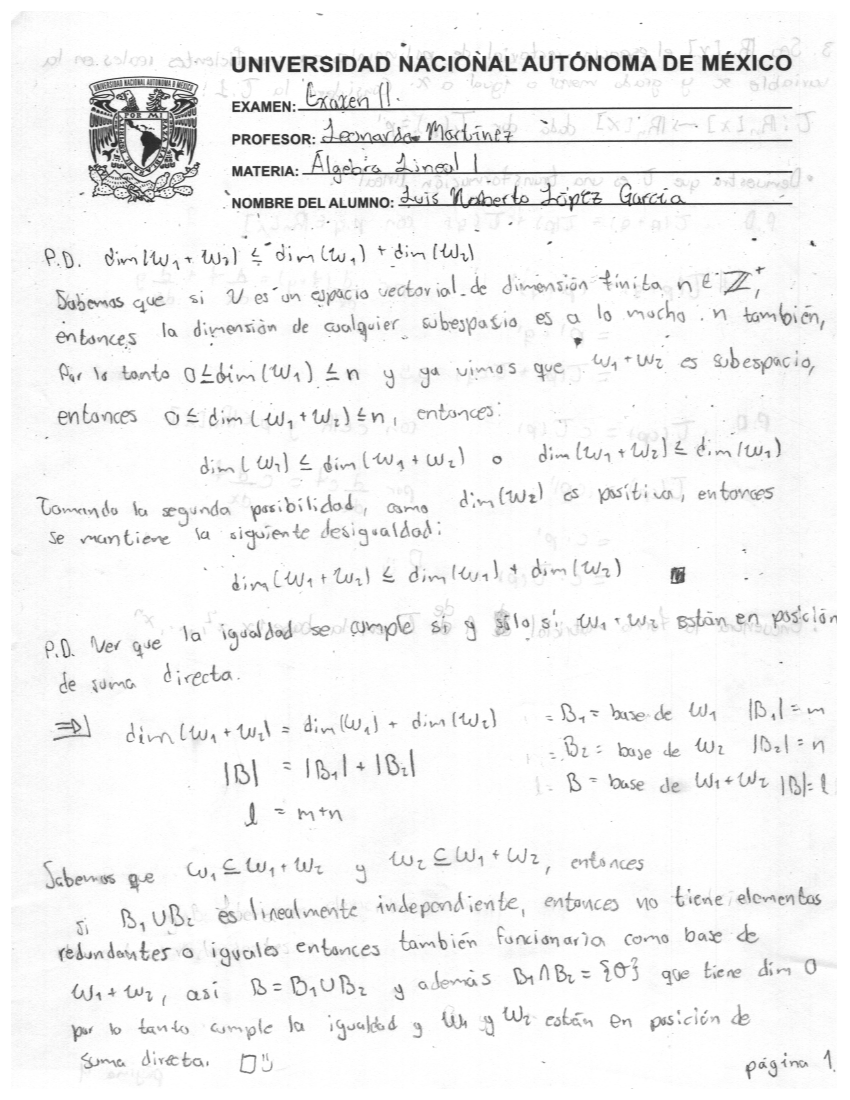 UNIVERSIDAD NACIONAL AUTÓNOMA DE MÉXICO
EXAMEN: Examen II.
PROFESOR: Leonardo Martínez
MATERIA: Álgebra Lineal I
NOMBRE DEL ALUMNO: Luis Norberto López García
P.D. dim(W₁ + W₂) ≤ dim(W₁) + dim(W₂)
Sabemos que si V es un espacio vectorial de dimensión finita n ∈ ℤ⁺,
entonces la dimensión de cualquier subespasio es a lo mucho n también,
Por lo tanto 0≤dim(W₁) ≤n y ya vimos que W₁+W₂ es subespacio,
entonces 0≤ dim(W₁+W₂)≤n, entonces:
dim(W₁) ≤ dim(W₁+W₂) o dim(W₁+W₂)≤ dim(W₁)
Tomando la segunda posibilidad, como dim(W₂) es positiva, entonces
se mantiene la siguiente desigualdad:
dim(W₁+W₂) ≤ dim(W₁) + dim(W₂) ■
P.D. Ver que la igualdad se cumple si y sólo si W₁+W₂ están en posición
de suma directa.
⇒| dim(W₁+W₂) = dim(W₁) + dim(W₂) = B₁ = base de W₁ |B₁| = m
|B| = |B₁| + |B₂| = B₂ = base de W₂ |B₂| = n
B = base de W₁+W₂ |B|= l
l = m+n
Sabemos que W₁ ⊆ W₁+W₂ y W₂ ⊆ W₁+W₂, entonces
si B₁ ∪ B₂ es linealmente independiente, entonces no tiene elementos
redundantes o iguales entonces también funcionaria como base de
W₁+W₂, así B = B₁∪B₂ y además B₁∩B₂ = {θ} que tiene dim 0
por lo tanto cumple la igualdad y W₁ y W₂ están en posición de
suma directa. □
página 1.